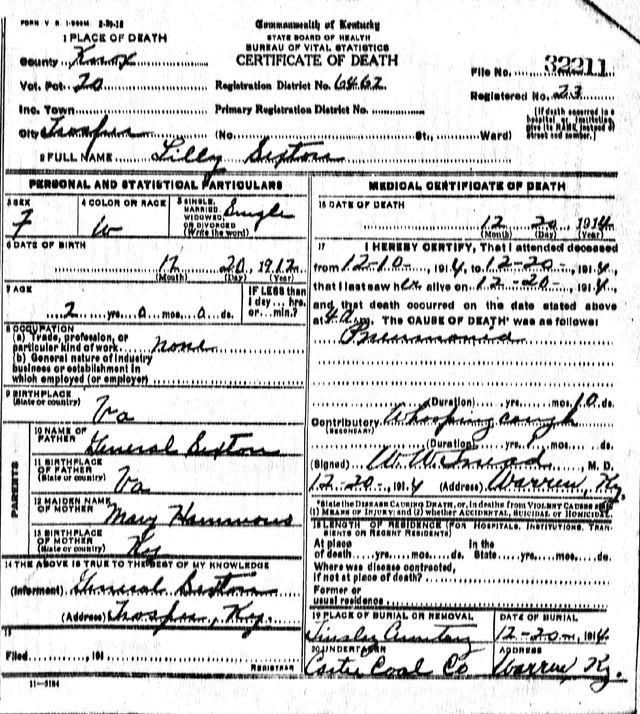 FORM V. S. 1-500M 2-20-12
Commonwealth of Kentucky
STATE BOARD OF HEALTH
BUREAU OF VITAL STATISTICS
CERTIFICATE OF DEATH
1 PLACE OF DEATH
County Knox
Vot. Pct. 20
Inc. Town
City Trosper
Registration District No. 6462
Primary Registration District No.
(No. St., Ward)
File No. 32211
Registered No. 23
(If death occurred in a hospital or institution, give its NAME instead of street and number.)
2 FULL NAME Lilly Sexton
PERSONAL AND STATISTICAL PARTICULARS
3 SEX F
4 COLOR OR RACE W
5 SINGLE, MARRIED, WIDOWED, OR DIVORCED (Write the word) Single
6 DATE OF BIRTH
12 20, 1912
(Month) (Day) (Year)
7 AGE
2 yrs. 0 mos. 0 ds.
IF LESS than 1 day, hrs. or min.?
8 OCCUPATION
(a) Trade, profession, or particular kind of work none
(b) General nature of industry business or establishment in which employed (or employer)
9 BIRTHPLACE
(State or country) Va
PARENTS
10 NAME OF FATHER General Sexton
11 BIRTHPLACE OF FATHER (State or country) Va
12 MAIDEN NAME OF MOTHER Mary Hammons
13 BIRTHPLACE OF MOTHER (State or country) Ky
14 THE ABOVE IS TRUE TO THE BEST OF MY KNOWLEDGE
(Informant) General Sexton
(Address) Trosper, Ky.
15
Filed , 191
REGISTRAR
11-5184
MEDICAL CERTIFICATE OF DEATH
16 DATE OF DEATH
12 20, 1914
(Month) (Day) (Year)
17 I HEREBY CERTIFY, That I attended deceased
from 12-10-, 1914, to 12-20-, 1914,
that I last saw her alive on 12-20-, 1914,
and that death occurred on the date stated above
at 4 a m. The CAUSE OF DEATH* was as follows:
Pneumonia
(Duration) yrs. mos. 10 ds.
Contributory Whooping cough
(SECONDARY)
(Duration) yrs. 1 mos. ds.
(Signed) W. W. Tinead, M. D.
12-20-, 1914 (Address) Warren, Ky.
*State the DISEASE CAUSING DEATH, or, in deaths from VIOLENT CAUSES state (1) MEANS OF INJURY; and (2) whether ACCIDENTAL, SUICIDAL or HOMICIDAL.
18 LENGTH OF RESIDENCE (FOR HOSPITALS, INSTITUTIONS, TRANSIENTS OR RECENT RESIDENTS)
At place of death yrs. mos. ds. In the State yrs. mos. ds.
Where was disease contracted, if not at place of death?
Former or usual residence
19 PLACE OF BURIAL OR REMOVAL Tinsley Cemetery
DATE OF BURIAL 12-20, 1914
20 UNDERTAKER Carter Coal Co
ADDRESS Warren Ky.